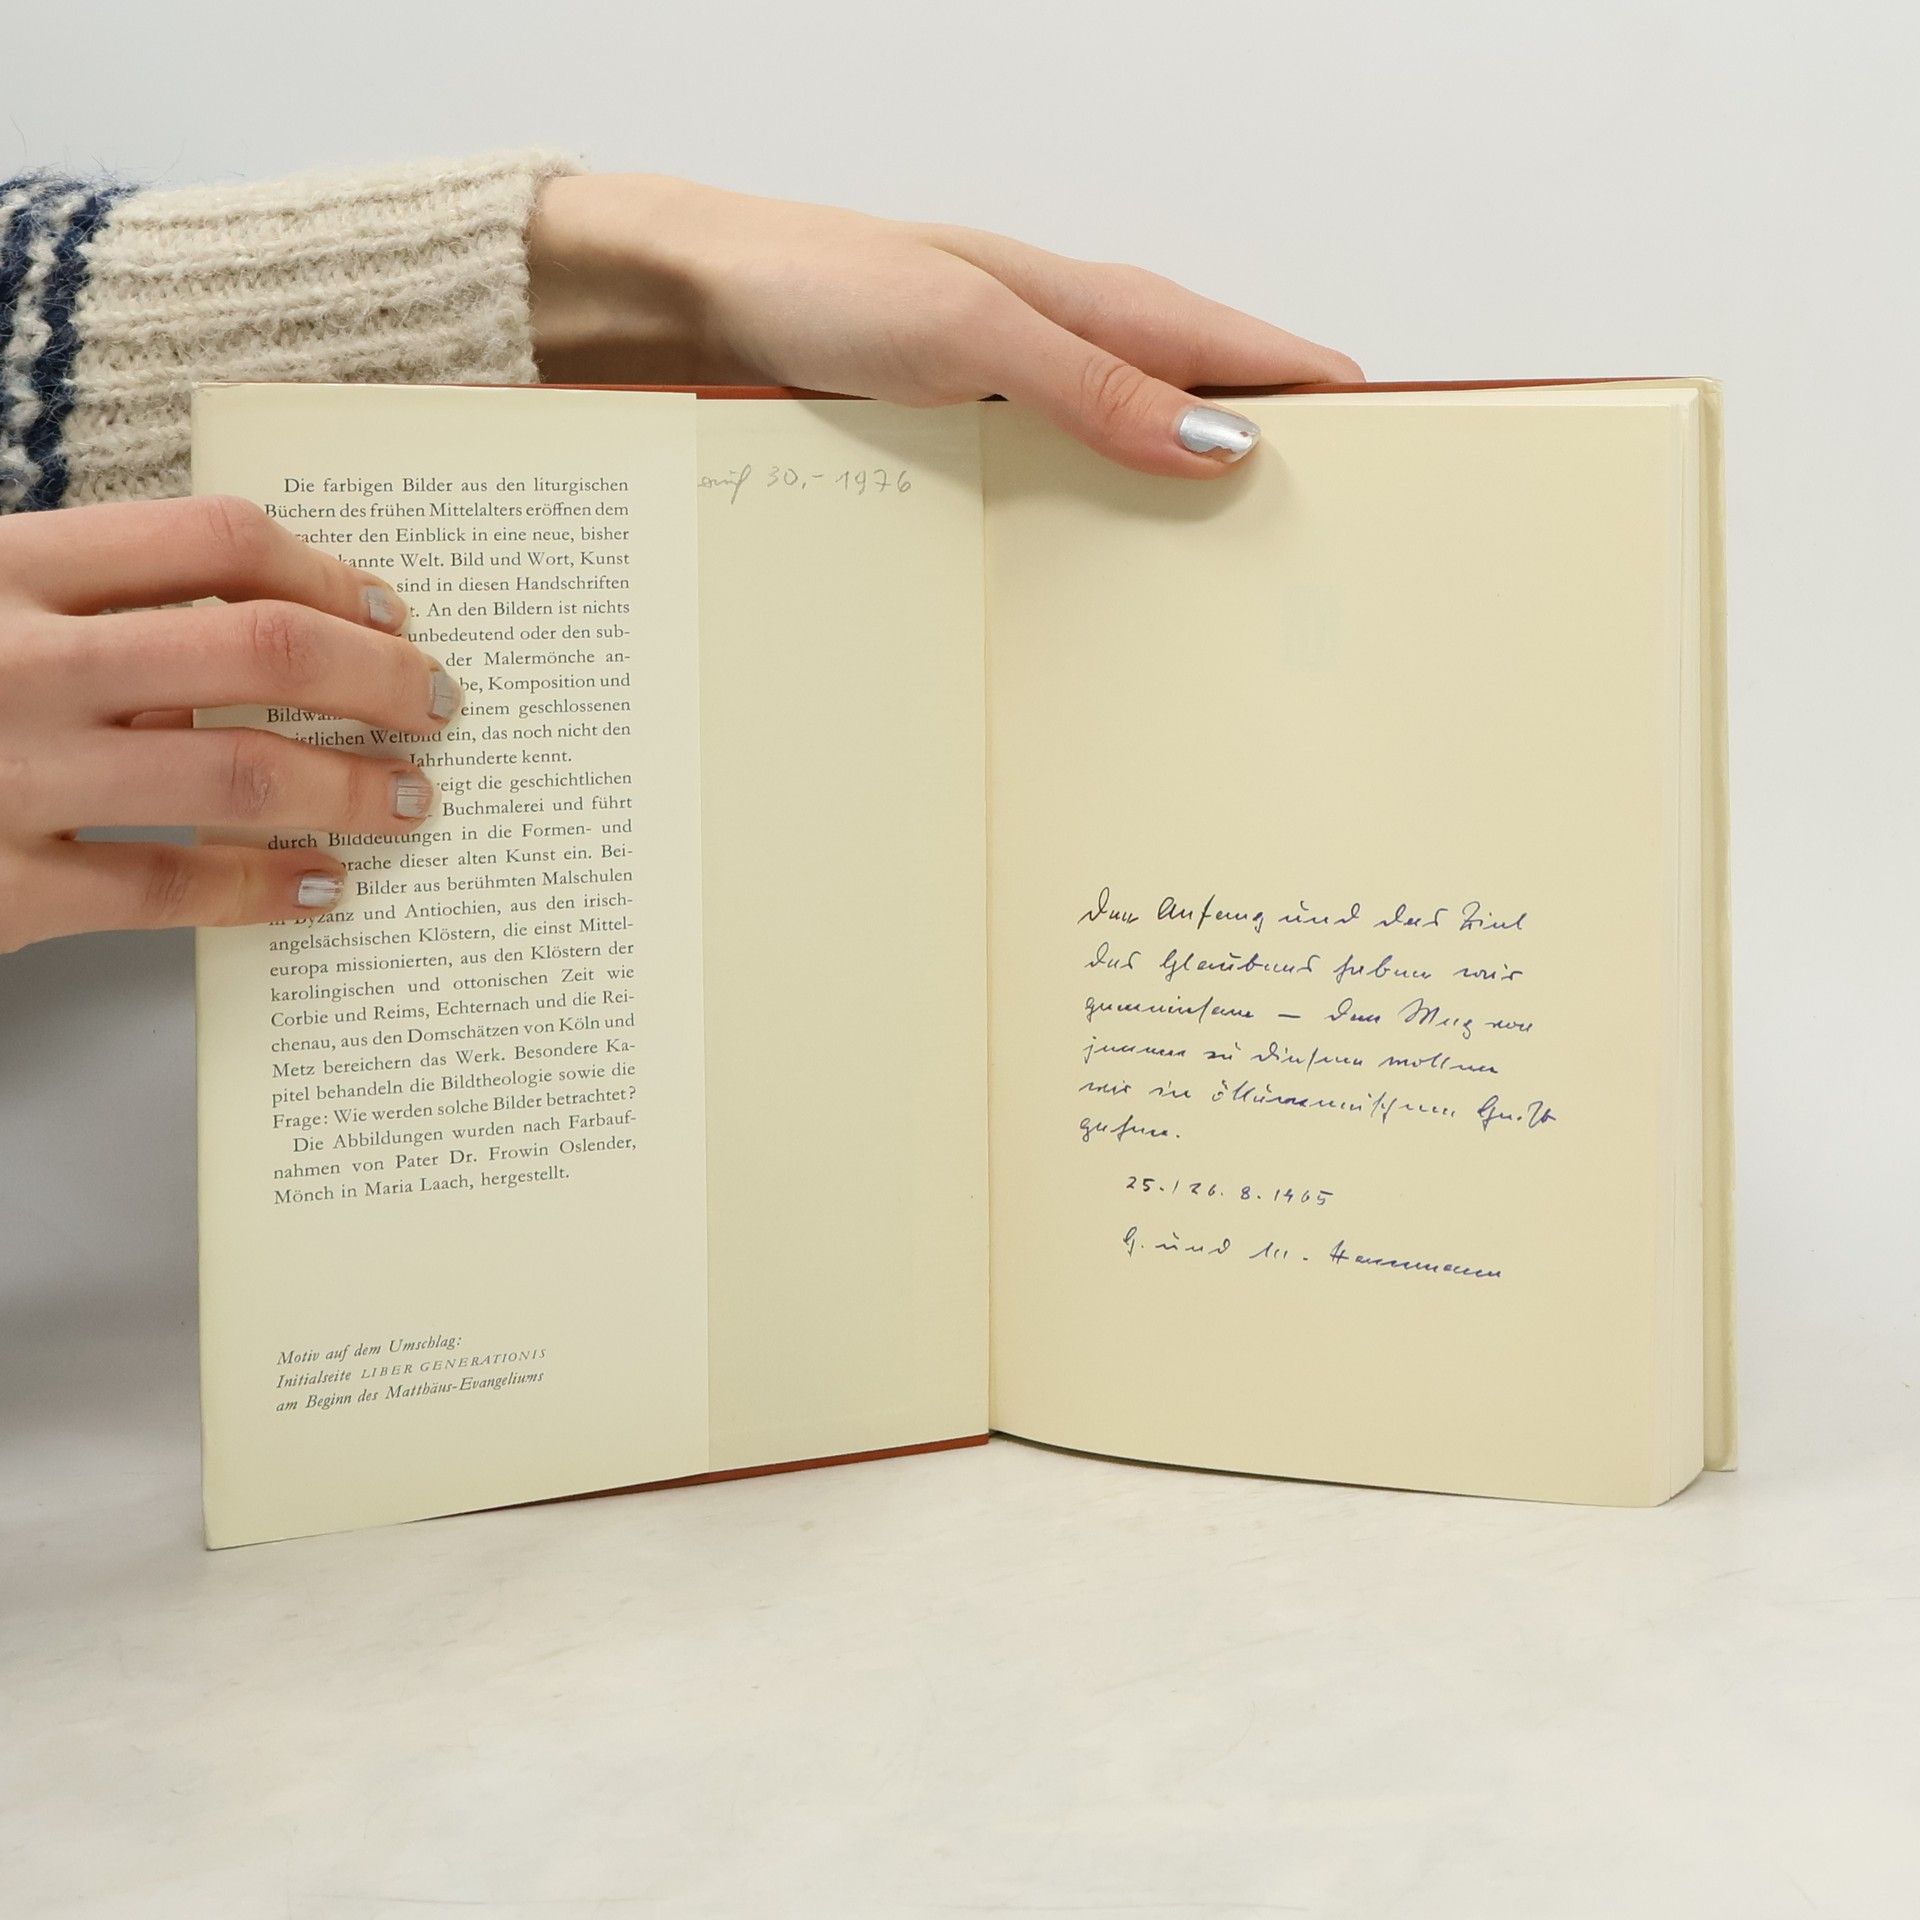 Die farbigen Bilder aus den liturgischen
Büchern des frühen Mittelalters eröffnen dem
rachter den Einblick in eine neue, bisher
kannte Welt. Bild und Wort, Kunst
sind in diesen Handschriften
t. An den Bildern ist nichts
unbedeutend oder den sub-
der Malermönche an-
be, Komposition und
Bildwah einem geschlossenen
istlichen Weltbild ein, das noch nicht den
Jahrhunderte kennt.
eigt die geschichtlichen
Buchmalerei und führt
durch Bilddeutungen in die Formen- und
prache dieser alten Kunst ein. Bei-
Bilder aus berühmten Malschulen
in Byzanz und Antiochien, aus den irisch-
angelsächsischen Klöstern, die einst Mittel-
europa missionierten, aus den Klöstern der
karolingischen und ottonischen Zeit wie
Corbie und Reims, Echternach und die Rei-
chenau, aus den Domschätzen von Köln und
Metz bereichern das Werk. Besondere Ka-
pitel behandeln die Bildtheologie sowie die
Frage: Wie werden solche Bilder betrachtet?
Die Abbildungen wurden nach Farbauf-
nahmen von Pater Dr. Frowin Oslender,
Mönch in Maria Laach, hergestellt.
Motiv auf dem Umschlag:
Initialseite LIBER GENERATIONIS
am Beginn des Matthäus-Evangeliums
30,- 1976
Den Anfang und das Ziel
des Glaubens haben wir
gemeinsam — den Weg von
jenem zu diesem wollen
wir in ökumenischem Geist
gehen.
25./26. 8. 1965
G. und M. Hannemann